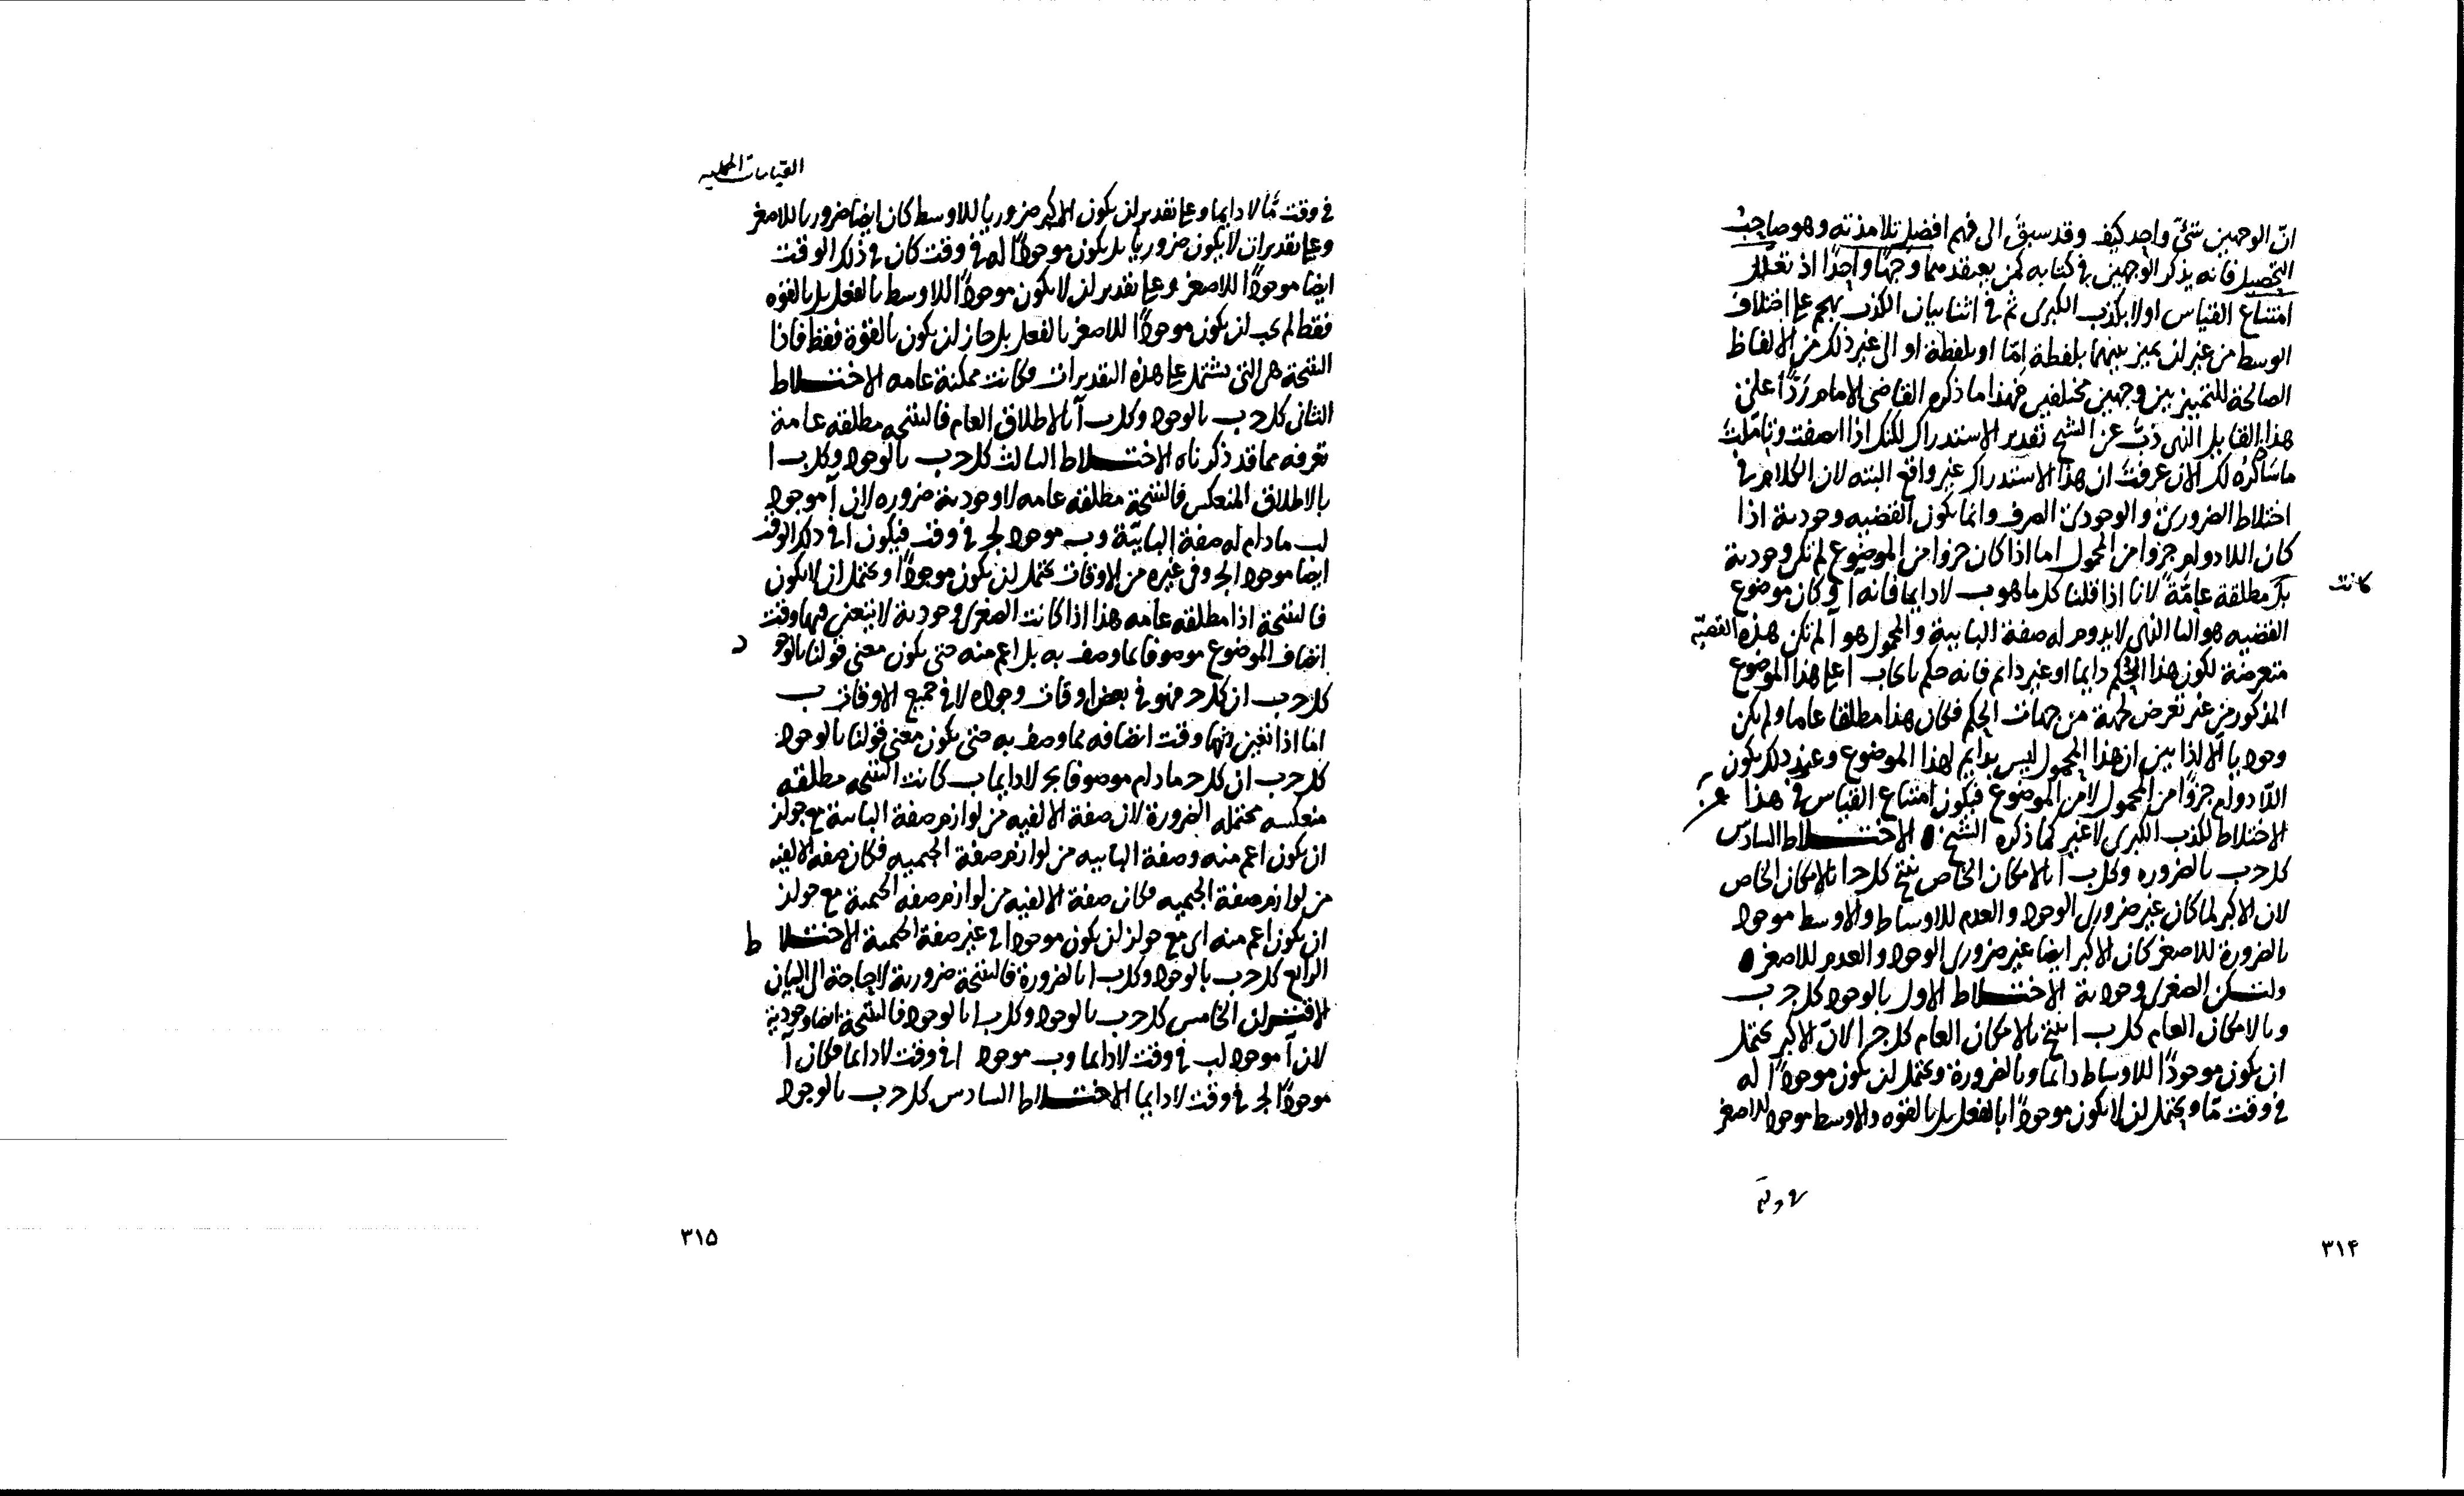 انّ الوجهين شئ واحد كيف وقد سبق الى فهم افضل تلامذته وهو صاحب
التحصيل فانه يذكر الوجهين فى كتابه كمن يعتقدهما وجهًا واحدًا اذ تعلل
امتناع القياس اولا بكذب الكبرى ثم فى اثنا بيان الكذب يهجم على اختلاف
الوسط من غير ان يميز بينهما بلفظة امّا او بلفظة او الى غير ذلك من الالفاظ
الصالحة للتمييز بين وجهين مختلفين فهذا ما ذكره القاضى الامام ردًّا على
هذا القايل الذى ذبّ عن الشيخ تقدير الاستدراك لكنك اذا انصفت وتاملت
ما ساذكره لك الان عرفت ان هذا الاستدراك غير واقع البته لان الكلام فى
اختلاط الضرورى والوجودى الصرف وانما يكون القضيه وجودية اذا
كان اللادوام جزوا من المحمول اما اذا كان جزوا من الموضوع لم تكن وجودية
بل مطلقة عامّة لانا اذا قلنا كل ما هو ب لا دايما فانه آ وكان موضوع
كانت
القضيه هو البا الذى لا يدوم له صفة البابية والمحمول هو آ لم تكن هذه القضيّة
متعرضة لكون هذا الحكم دايما او غير دايم فانه حكم بايجاب آ على هذا الموضوع
المذكور من غير تعرض لجهة من جهات الحكم فكان هذا مطلقا عاما ولم يكن
وجوديا الا اذا بين ان هذا المحمول ليس بدايم لهذا الموضوع وعند ذلك يكون
اللادوام جزوًا من المحمول لا من الموضوع فيكون امتناع القياس فى هذا
الاختلاط لكذب الكبرى لا غير كما ذكره الشيخ الاختلاط السادس
كل ج ب بالضروره وكل ب آ بالامكان الخاص ينتج كل ج ا بالامكان الخاص
لان الاكبر لما كان غير ضرورى الوجود والعدم للاوسط والاوسط موجود
بالضرورة للاصغر كان الاكبر ايضا غير ضرورى الوجود والعدم للاصغر
ولتكن الصغرى وجودية الاختلاط الاول بالوجود كل ج ب
وبالامكان العام كل ب ا ينتج بالامكان العام كل ج ا لانّ الاكبر يحتمل
ان يكون موجودًا للاوسط دايما وبالضرورة ويحتمل ان يكون موجودًا له
فى وقت مّا ويحتمل ان لا يكون موجودًا بالفعل بل بالقوه والاوسط موجود للاصغر
٣١۴
القياسات الحمليه
فى وقت مّا لا دايما وعلى تقدير ان يكون الاكبر ضروريا للاوسط كان ايضا ضروريا للاصغر
وعلى تقدير ان لا يكون ضروريا بل يكون موجودًا له فى وقت كان فى ذلك الوقت
ايضا موجودًا للاصغر وعلى تقدير ان لا يكون موجودًا للاوسط بالفعل بل بالقوه
فقط لم يجب ان يكون موجودًا للاصغر بالفعل بل جاز ان يكون بالقوة فقط فاذا
النتيجة هى التى يشتمل على هذه التقديرات وكانت ممكنة عامه الاختلاط
الثانى كل ج ب بالوجود وكل ب آ بالاطلاق العام فالنتيجه مطلقه عامة
تعرفه مما قد ذكرناه الاختلاط الثالث كل ج ب بالوجود وكل ب ا
بالاطلاق المنعكس فالنتيجة مطلقه عامه لا وجودية ضروره لان آ موجود
لب ما دام له صفة البابيّة وب موجود لج فى وقت فيكون آ فى ذلك الوقت
ايضا موجودا لج وفى غيره من الاوقات يحتمل ان يكون موجودًا ويحتمل ان لا يكون
فالنتيجة اذا مطلقه عامه هذا اذا كانت الصغرى وجودية لا يتعين فيها وقت
اتصاف الموضوع موصوفا بما وصف به بل اعم منه حتى يكون معنى قولنا بالوجود
كل ج ب ان كل ج فهو فى بعض اوقات وجوده لا فى جميع الاوقات ب
امّا اذا تعين فيها وقت اتصافه بما وصف به حتى يكون معنى قولنا بالوجود
كل ج ب ان كل ج ما دام موصوفا بج لا دايما ب كانت النتيجه مطلقه
منعكسه محتمله الضرورة لان صفة الالفيه من لوازم صفة البابية مع جواز
ان يكون اعم منه وصفة البابيه من لوازم صفة الجيميه فكان صفه الالفيه
من لوازم صفة الجيميه فكان صفة الالفيه من لوازم صفه الجيمية مع جواز
ان يكون اعم منه اى مع جواز ان يكون موجودا فى غير صفة الجيمية الاختلاط
الرابع كل ج ب بالوجود وكل ب ا بالضرورة فالنتيجة ضرورية لا حاجة الى البيان
الاقتران الخامس كل ج ب بالوجود وكل ب ا بالوجود فالنتيجة ايضا وجودية
لان آ موجود لب فى وقت لا دايما وب موجود فى وقت لا دايما فكان آ
موجودًا لج فى وقت لا دايما الاختلاط السادس كل ج ب بالوجود
٣١۵